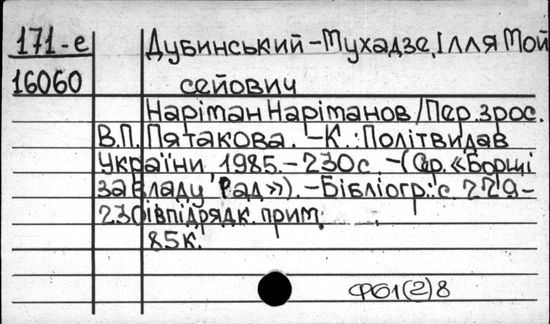 171-е Дубинський-Мухадзе, Ілля Мой
16060 сейович
Наріман Наріманов/Пер.зрос.
В.П. Пятакова. -К.:Політвидав
України 1985.-230с -(Ср.«Борці
за владу Рад»).-Бібліогр.:с.229-
230 івпідрядк.прим.
85к.
ФБ1(2)8